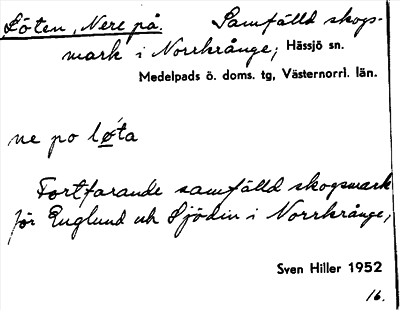 Löten, Nere på. Samfälld skogs-
mark i Norrkrånge, Hässjö sn.
Medelpads ö. doms. tg, Västernorrl. län.
ne po lø̱´ta
Fortfarande samfälld skogsmark
för Englund och Sjödin i Norrkrånge,
Sven Hiller 1952
16.